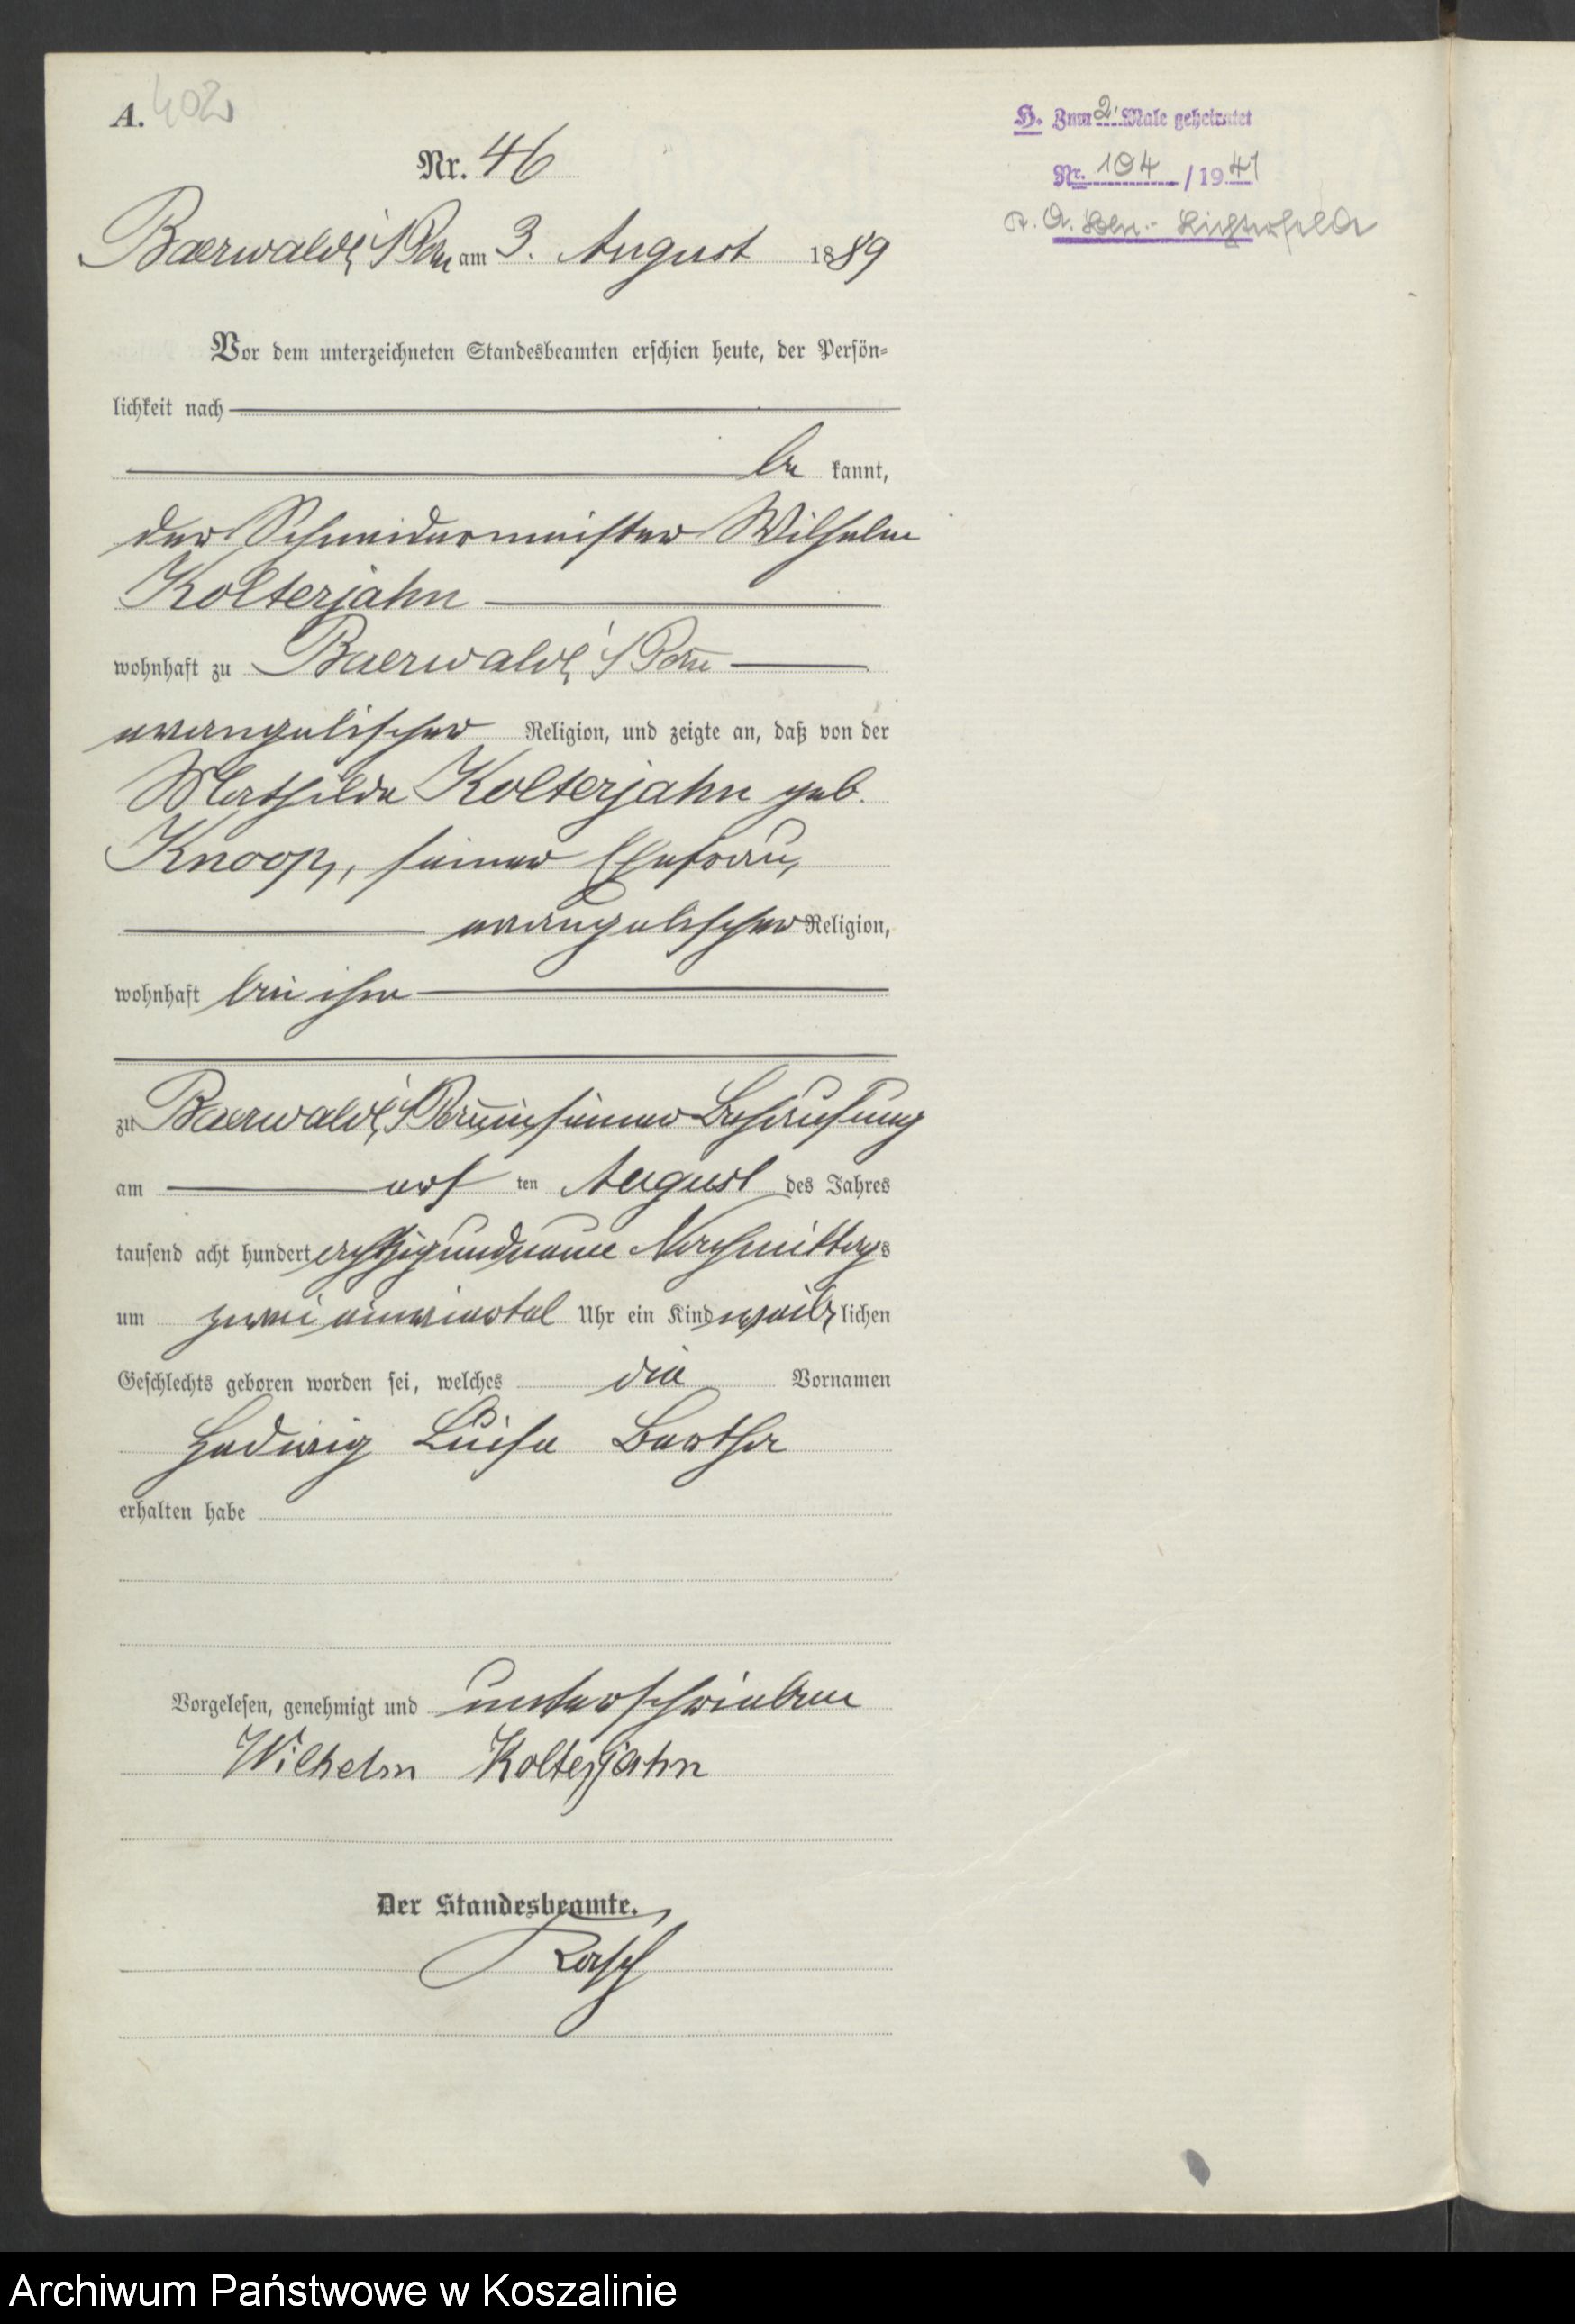 A. 402
H. Zum 2. Male geheiratet
Nr. 104 / 1941
St. A. Bln.- Lichterfelde
Nr. 46
Baerwald i/Pom am 3. August 1889
Vor dem unterzeichneten Standesbeamten erschien heute, der Persön-
lichkeit nach
be kannt,
der Schneidermeister Wilhelm
Kolterjahn
wohnhaft zu Baerwald i/Pom
evangelischer Religion, und zeigte an, daß von der
Mathilde Kolterjahn geb.
Knoop, seiner Ehefrau,
evangelischer Religion,
wohnhaft bei ihm
zu Baerwald i/Pom, in seiner Behausung
am ersten August des Jahres
tausend acht hundert achtzig und neun Nachmittags
um zwei einviertel Uhr ein Kind weiblichen
Geschlechts geboren worden sei, welches die Vornamen
Hedwig Luise Bertha
erhalten habe
Vorgelesen, genehmigt und unterschrieben
Wilhelm Kolterjahn
Der Standesbeamte.
Archiwum Państwowe w Koszalinie